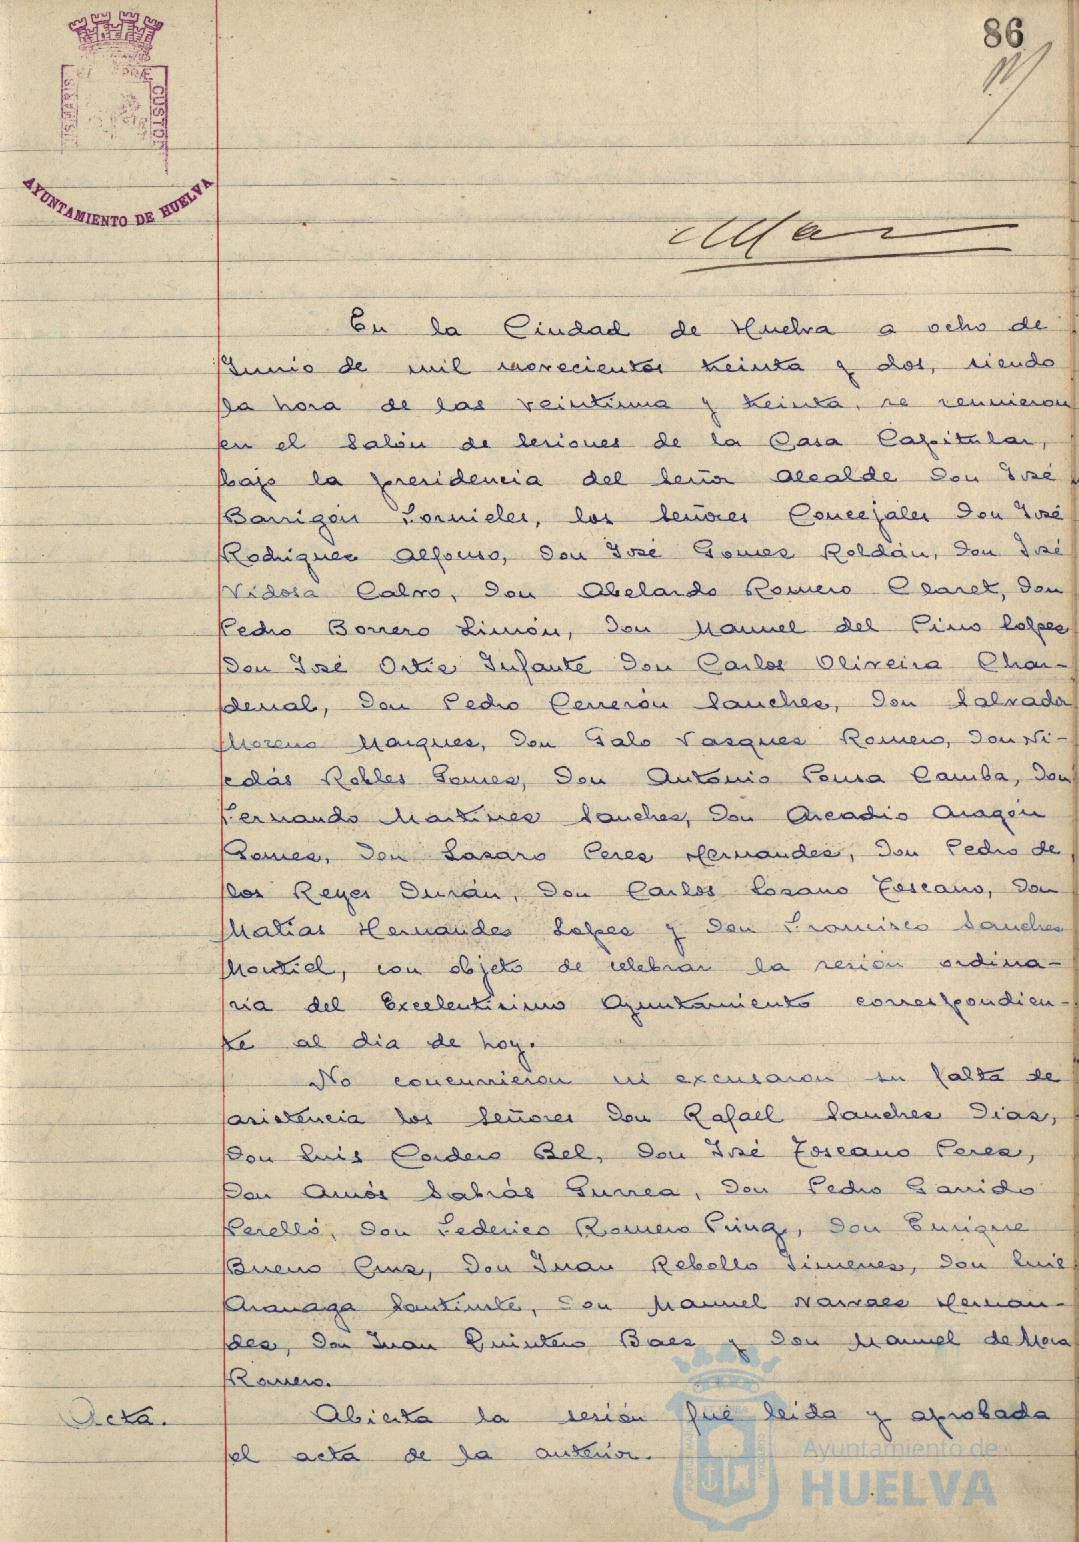 86
PORTUS MARIS ET TERRÆ CUSTODIA
AYUNTAMIENTO DE HUELVA
En la Ciudad de Huelva a ocho de
Junio de mil novecientos treinta y dos, siendo
la hora de las veintiuna y treinta, se reunieron
en el Salón de Sesiones de la Casa Capitular,
bajo la presidencia del Señor Alcalde Don José
Barrigón Fornieles, los Señores Concejales Don José
Rodriguez Alfonso, Don José Gomes Roldán, Don José
Vidosa Calvo, Don Abelardo Romero Claret, Don
Pedro Borrero Limón, Don Manuel del Pino Lopes
Don José Ortiz Infante Don Carlos Oliveira Char-
denal, Don Pedro Cerrejón Sanchez, Don Salvador
Moreno Marques, Don Galo Vasques Romero, Don Ni-
colás Robles Gomes, Don Antonio Pousa Camba, Don
Fernando Martines Sanches, Don Arcadio Aragón
Gomes, Don Lazaro Peres Hernandes, Don Pedro de
los Reyes Durán, Don Carlos Lozano Toscano, Don
Matías Hernandes Lopes y Don Francisco Sanches
Montiel, con objeto de celebrar la sesión ordina-
ria del Excelentisimo Ayuntamiento correspondien-
te al dia de hoy.
No concurrieron ni excusaron su falta de
asistencia los Señores Don Rafael Sanches Dias,
Don Luis Cordero Bel, Don José Toscano Peres,
Don Amós Sabrás Gurrea, Don Pedro Garrido
Perelló, Don Federico Romero Piung, Don Enrique
Bueno Cruz, Don Juan Rebollo Jimenes, Don Luis
Aranaga Santiuste, Don Manuel Narvaes Hernan-
des, Don Juan Quintero Baes y Don Manuel de Mora
Romero.
Acta. Abierta la sesión fué leida y aprobada
el acta de la anterior.
Ayuntamiento de
HUELVA